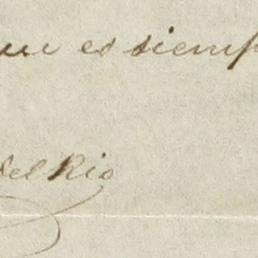 que es siemp
del Rio